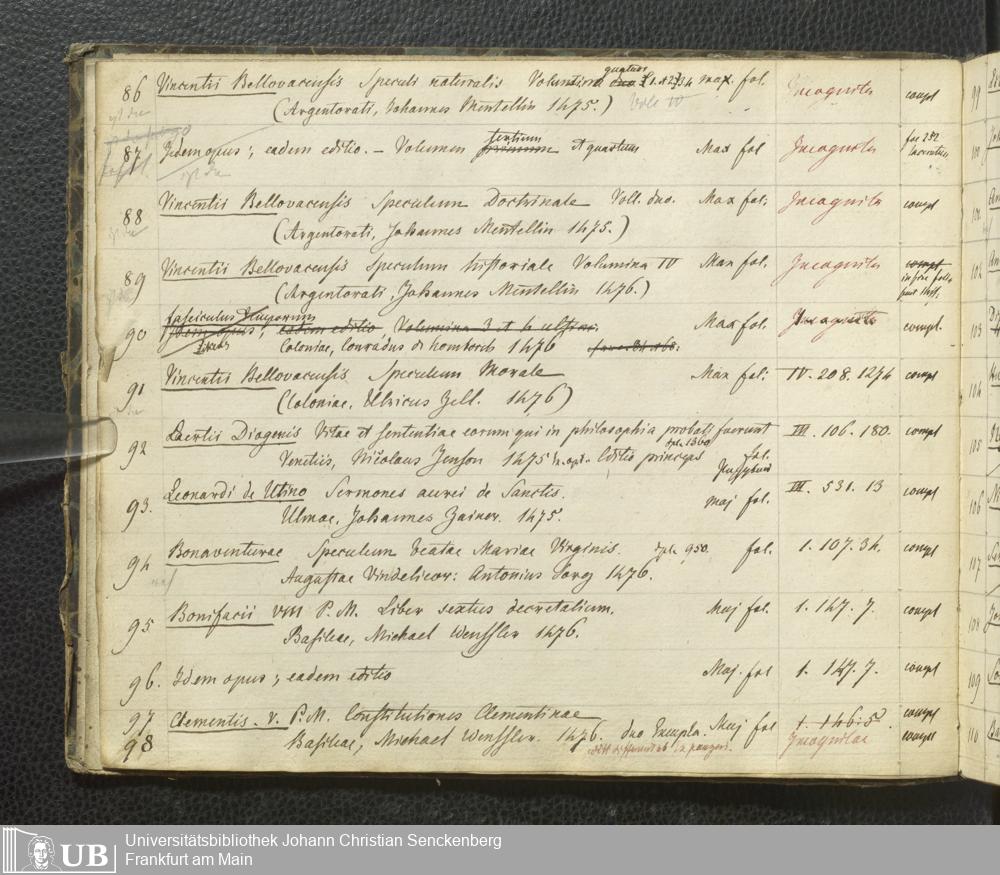 86 Vincentii Bellovacensis Speculi naturalis Volumina quatuor 1. 2 3 4 max. fol. Incognita compl
(Argentorati, Johannes Mentellin 1475.) Vol. IV
87 Idem opus; eadem editio. – Volumen primum tertium et quartum Max fol Incognita
88 Vincentii Bellovacensis Speculum Doctrinale Voll. duo. Max fol. Incognita compl
(Argentorati, Johannes Mentellin 1475.)
89 Vincentii Bellovacensis Speculum historiale Volumina IV Max fol. Incognita compl
(Argentorati, Johannes Mentellin 1476.) in fine
fasciculus temporum
90 Idem opus; eadem editio Volumina 3 et 4 Max fol. Incognita compl.
Coloniae, Conradus de homborch 1476
91 Vincentii Bellovacensis Speculum Morale Max fol. IV. 208. 1274 compl
(Coloniae, Ulricus Zell. 1476)
92 Laertii Diogenis Vitae et sententiae eorum qui in philosophia probati fuerunt III. 106. 180. compl
Venetiis, Nicolaus Jenson 1475 Editio princeps fol.
93. Leonardi de Utino Sermones aurei de Sanctis. maj fol. III. 531. 13 compl
Ulmae, Johannes Zainer. 1475.
94 Bonaventurae Speculum beatae Mariae Virginis. 950. fol. 1. 107. 34. compl
Augustae Vindelicor: Antonius Sorg 1476.
95 Bonifacii VIII P. M. Liber sextus decretalium. Maj fol. 1. 147. 7. compl
Basileae, Michael Wenssler 1476.
96. Idem opus; eadem editio Maj. fol 1. 147. 7. compl
97 Clementis. V. P. M. Constitutiones Clementinae 1. 146. 5. compl
98 Basileae, Michael Wenssler. 1476. duo Exempla. Maj fol Incognitae compl
UB Universitätsbibliothek Johann Christian Senckenberg
Frankfurt am Main